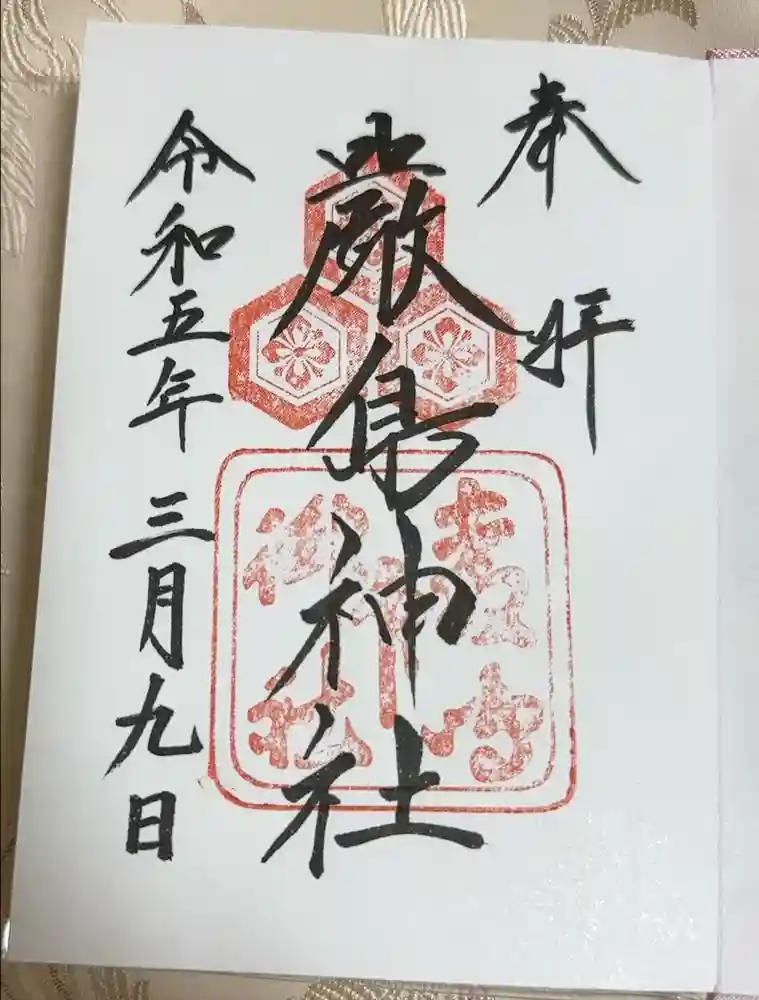 奉拝
厳島神社
令和五年三月九日